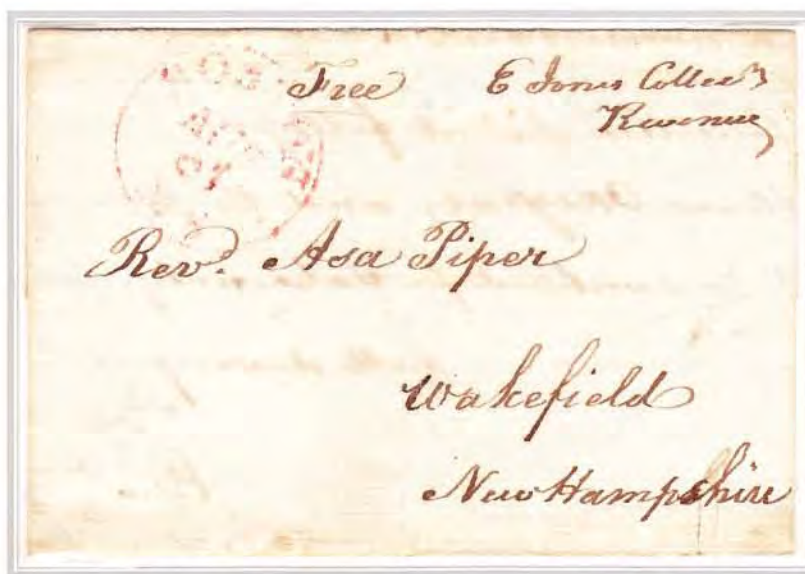 Free E Jones Collecr
Revenue
Revd. Asa Piper
Wakefield
New Hampshire